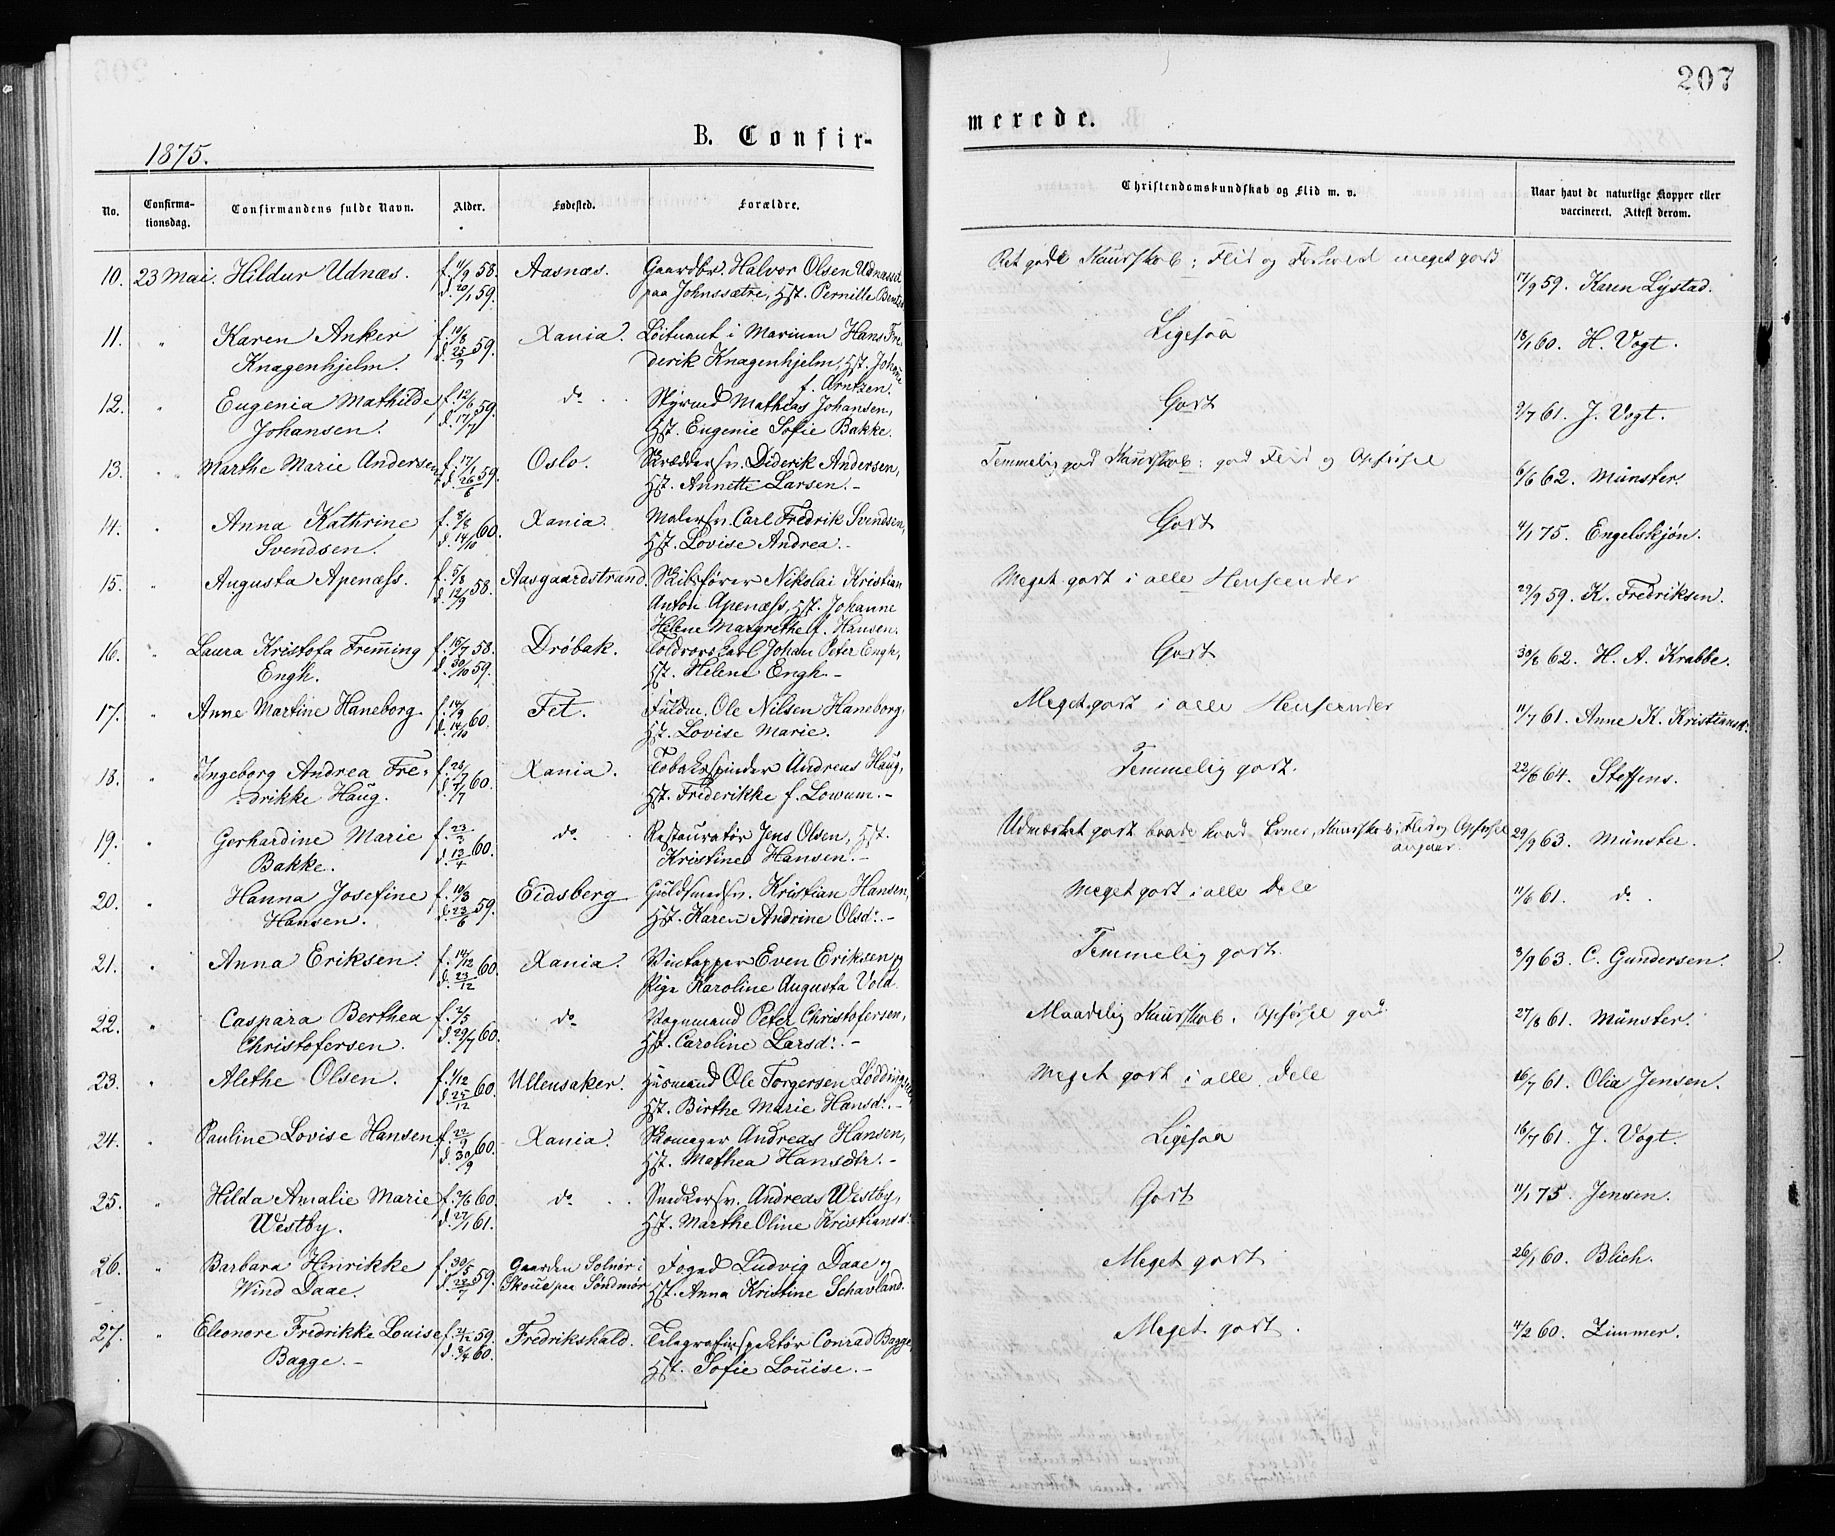 207
1875.
B. Confir-
merede.
No.
Confirma-
tionsdag.
Confirmandens fulde Navn.
Alder.
Fødested.
Forældre.
Christendomskundskab og Flid m. v.
Naar havt de naturlige Kopper eller
vaccineret. Attest derom.
10. 23 Mai. Hildur Udnæs. f. 11/9 58. Aasnæs. Gaardbr. Halvor Olsen Udnæs
d. 20/1 59. paa Johnssætre, Hst. Pernille
Ret gode Kundskab; Flid og Forhold meget godt
17/9 59. Karen Lystad.
11. " Karen Anker f. 10/8 59. Xania. Løitnant i Marinen Hans Fre-
Knagenhjelm. d. 25/9 derik Knagenhjelm, Hst. Johanne
f. Arntzen.
Ligesaa
18/1 60. H. Vogt.
12. " Eugenia Mathilde f. 12/6 59. do Styrmd Mathias Johansen,
Johansen. d. 17/7 Hst. Eugenie Sofie Bakke.
Godt
2/7 61. J. Vogt.
13. " Marthe Marie Andersen f. 17/1 59. Oslo. Skræddersv. Diderik Andersen,
d. 26/6 Hst. Annette Larsen.-
Temmelig god Kundskab; god Flid og Opførsel
6/6 62. Münster.
14. " Anna Kathrine f. 8/8 60. Xania. Malersv. Carl Fredrik Svendsen,
Svendsen. d. 14/10 Hst. Lovise Andrea.-
Godt
4/1 75. Engelskjøn.
15. " Augusta Apenæss. f. 5/8 58. Aasgaardstrand. Skibsfører Nikolai Kristian
d. 12/9 Anton Apenæss, Hst. Johanne
Helene Margrethe f. Hansen.
Meget godt i alle Henseender
29/9 59. K. Fredriksen.
16. " Laura Kristofa Fremming f. 15/7 58. Drøbak. Toldroro Carl Johan Peter Engh,
Engh. d. 30/10 59. Hst. Helene Engh.-
Godt
30/8 62. H. A. Krabbe.
17. " Anne Martine Haneborg f. 14/9 60. Fet. Fuldm. Ole Nilsen Haneborg,
d. 14/10 Hst. Lovise Marie.
Meget godt i alle Henseender
11/7 61. Anne K. Kristiansdr.
18. " Ingeborg Andrea Fre- f. 60. Xania. Tobakspinder Andreas Haug,
drikke Haug. Hst. Friderikke f. Lowum.-
Temmelig godt.
22/6 64. Steffens.
19. " Gerhardine Marie f. 23/3 60. do Restauratør Jens Olsen, Hst.
Bakke. d. 13/4 Kristine Hansen.-
Udmærket godt baade hvad Evner, Kundskab, Flid og Opførsel
angaar.
29/9 63. Münster.
20. " Hanna Josefine f. 10/3 59. Eidsberg Guldsmedsv. Kristian Hansen,
Hansen. d. 23/6 Hst. Karen Andrine Olsdr.-
Meget godt i alle Dele
11/6 61. do.
21. " Anna Eriksen. f. 14/12 60. Xania. Vintapper Even Eriksen og
d. 23/12 Pige Karoline Augusta Vold.
Temmelig godt.
3/9 63. C. Gundersen.
22. " Caspara Berthea f. 2/5 60. do Vognmand Peter Christofersen,
Christofersen. d. 29/7 Hst. Caroline Larsdr.-
Maadelig Kundskab. Opførsel god.
27/8 61. Münster.
23. " Alethe Olsen. f. 1/12 60. Ullensaker. Husmand Ole Torgersen
d. 25/12 Hst. Birthe Marie Hansdr.-
Meget godt i alle Dele
16/7 61. Olia Jensen.
24. " Pauline Lovise Hansen. f. 22/9 60. Xania. Skomager Andreas Hansen,
d. 30/9 Hst. Mathea Hansdtr.-
Ligesaa
16/7 61. J. Vogt.
25. " Hilda Amalie Marie f. 2/6 60. do Snedkersv. Andreas Westby,
Westby. d. 27/1 61. Hst. Marthe Oline Kristiansdr.
Godt
11/1 75. Jensen.
26. " Barbara Henrikke f. 30/5 59. Gaarden Solnør i Foged Ludvig Daae og
Wind Daae. d. 22/7 Skoue paa Søndmør Hst. Anna Kristine Schavland.
Meget godt
26/1 60. Blich.
27. " Eleonore Fredrikke Louise f. 2/12 59. Fredrikshald. Telegrafinspektør Conrad Bagge,
Bagge.- d. 3/4 60. Hst. Sofie Louise.-
Meget godt.
4/2 60. Zimmer.